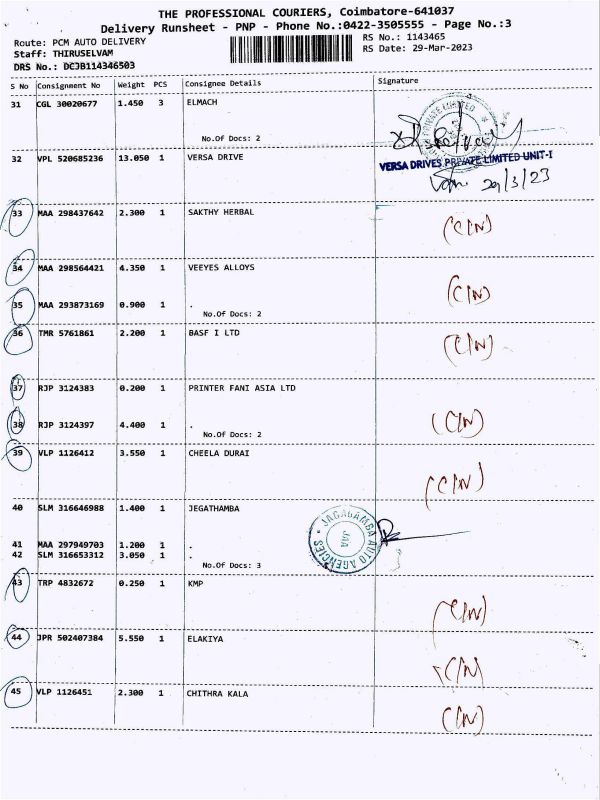 THE PROFESSIONAL COURIERS, Coimbatore-641037
Delivery Runsheet - PNP - Phone No.:0422-3505555 - Page No.:3
Route: PCM AUTO DELIVERY
RS No.: 1143465
Staff: THIRUSELVAM
RS Date: 29-Mar-2023
DRS No.: DCJB114346503
S No Consignment No Weight PCS Consignee Details Signature
31 CGL 30020677 1.450 3 ELMACH
No.Of Docs: 2
32 VPL 520685236 13.050 1 VERSA DRIVE
VERSA DRIVES PRIVATE LIMITED UNIT-I
29/3/23
33 MAA 298437642 2.300 1 SAKTHY HERBAL
(C/N)
34 MAA 298564421 4.350 1 VEEYES ALLOYS
(C/N)
35 MAA 293873169 0.900 1 .
No.Of Docs: 2
36 TMR 5761861 2.200 1 BASF I LTD
(C/N)
37 RJP 3124383 0.200 1 PRINTER FANI ASIA LTD
38 RJP 3124397 4.400 1 .
(C/N)
No.Of Docs: 2
39 VLP 1126412 3.550 1 CHEELA DURAI
(C/N)
40 SLM 316646988 1.400 1 JEGATHAMBA
JAGAGAMBA AUTO AGENCIES
JAA
41 MAA 297949703 1.200 1 .
42 SLM 316653312 3.050 1 .
No.Of Docs: 3
43 TRP 4832672 0.250 1 KMP
(C/N)
44 JPR 502407384 5.550 1 ELAKIYA
(C/N)
45 VLP 1126451 2.300 1 CHITHRA KALA
(C/N)